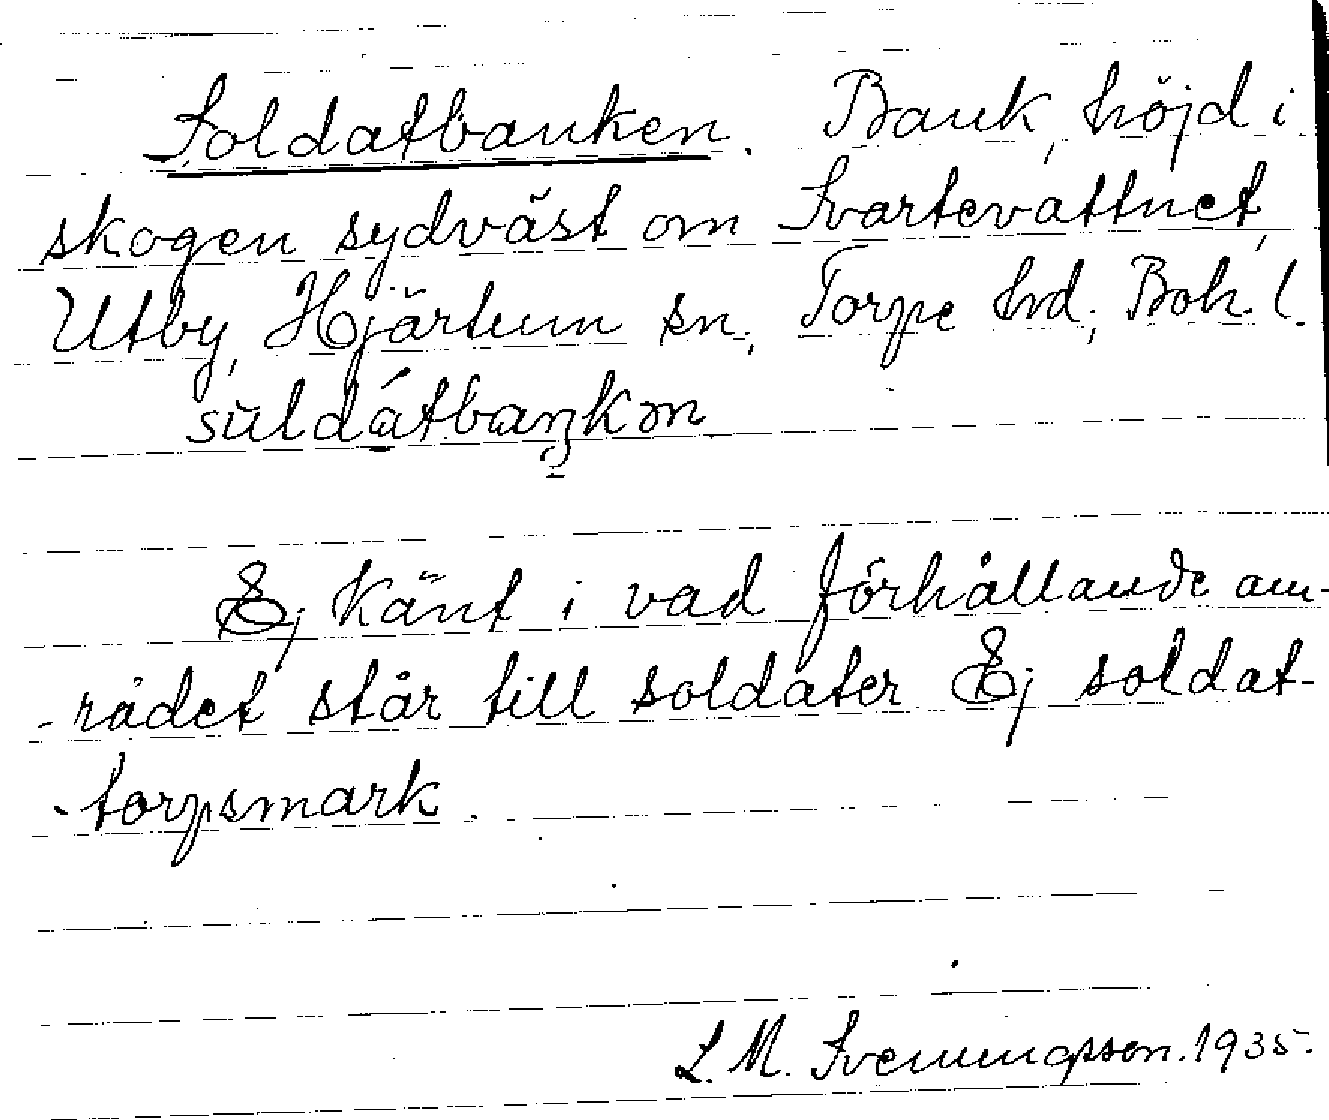 Soldatbanken. Bank, höjd i
skogen sydväst om Svartevattnet,
Utby, Hjärtum sn, Torpe hd, Boh. l.
suldátbaŋkən
Ej känt i vad förhållande om-
-rådet står till soldater Ej soldat-
-torpsmark.
L. M. Svenungsson. 1935.